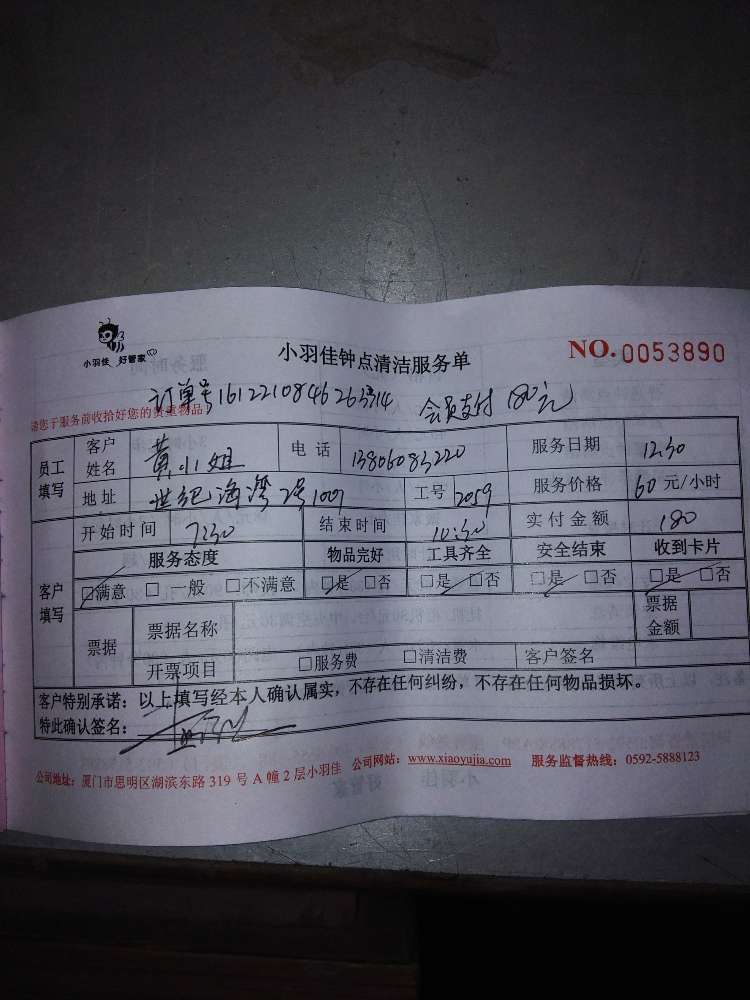 小羽佳 好管家
小羽佳钟点清洁服务单
NO.0053890
订单号 会员支付 180元
请您于服务前收拾好您的贵重物品!
员工填写 客户姓名 黄小姐 电话 13806083220 服务日期 12.30
地址 世纪海湾2号1001 工号 2059 服务价格 60元/小时
客户填写 开始时间 7:30 结束时间 10:30 实付金额 180
服务态度 物品完好 工具齐全 安全结束 收到卡片
□满意 □一般 □不满意 □是 □否 □是 □否 □是 □否 □是 □否
票据 票据名称 票据金额
开票项目 □服务费 □清洁费 客户签名
客户特别承诺:以上填写经本人确认属实,不存在任何纠纷,不存在任何物品损坏。
特此确认签名:
公司地址:厦门市思明区湖滨东路 319 号 A 幢 2 层小羽佳 公司网站:www.xiaoyujia.com 服务监督热线:0592-5888123